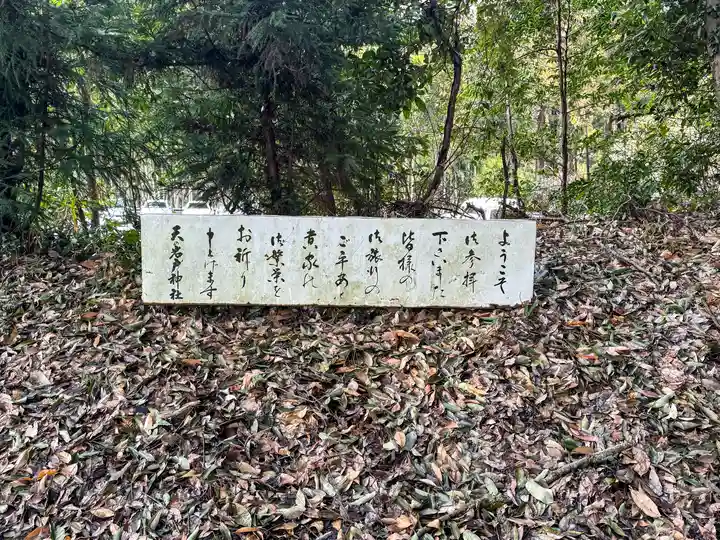 ようこそ
御参拝
下さいました
皆様の
御旅行の
ご平安と
貴家の
御繁栄を
お祈り
申し上げます
天岩戸神社